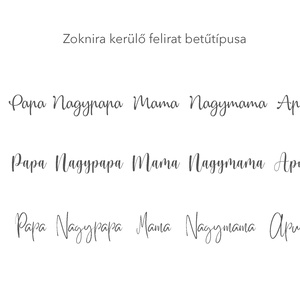 Zoknira kerülő felirat betűtípusa
Papa Nagypapa Mama Nagymama Ap
Papa Nagypapa Mama Nagymama Apu
Papa Nagypapa Mama Nagymama Apu